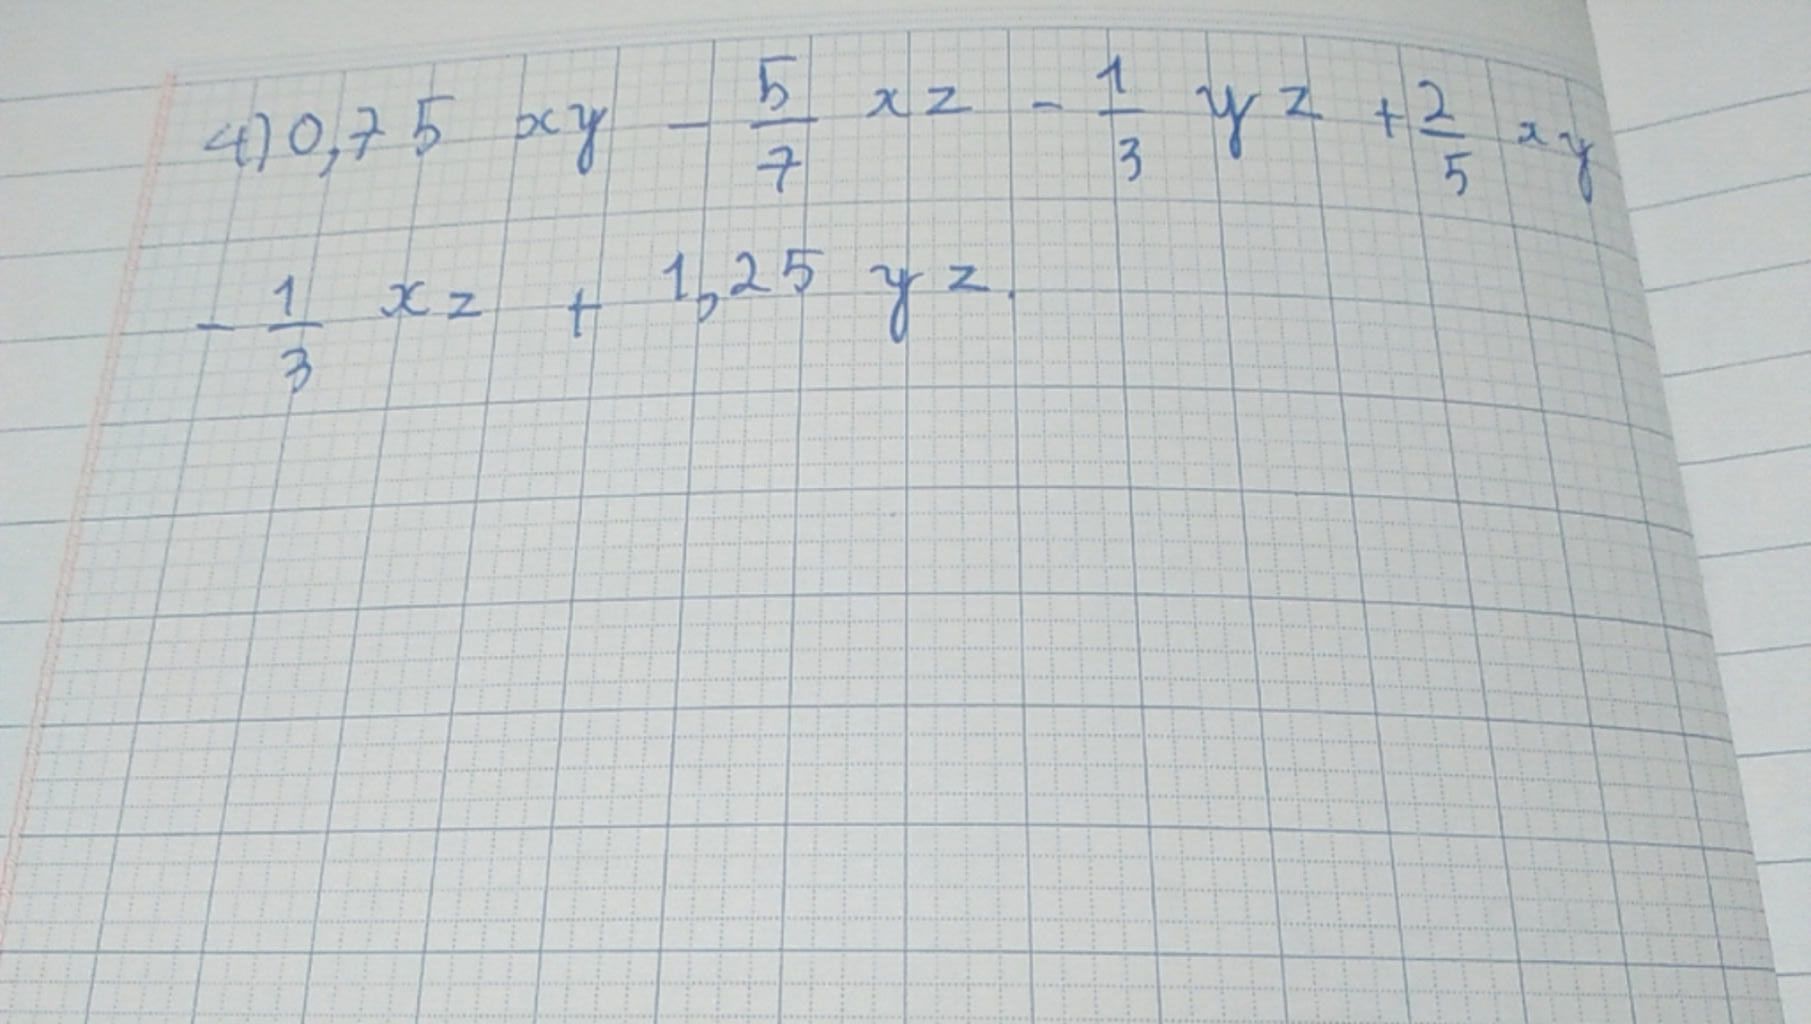 4) 0,75 xy - 5/7 xz - 1/3 yz + 2/5 xy
- 1/3 xz + 1,25 yz.